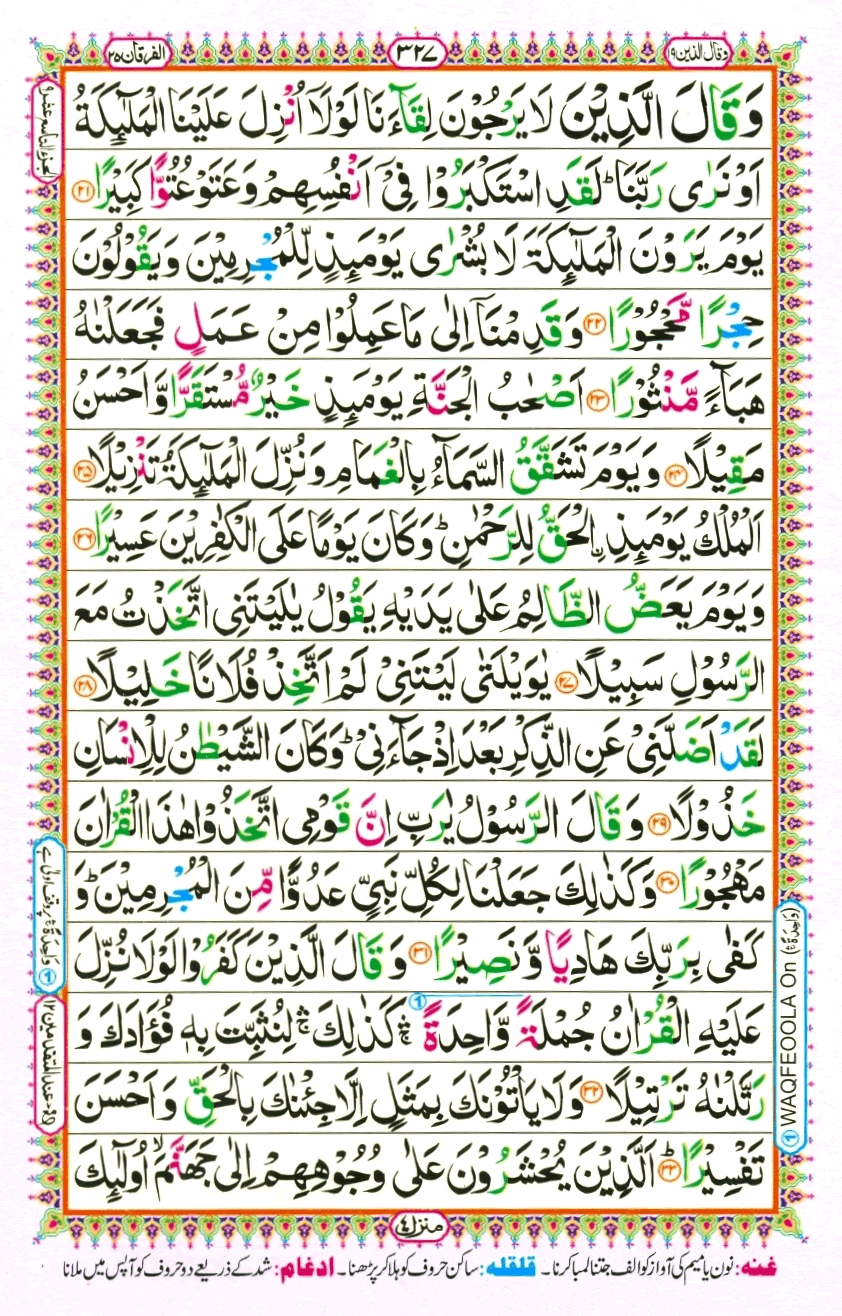 وقال الذین ۱۹
۳۲۷
الفرقان ۲۵
وَقَالَ الَّذِيْنَ لَا يَرْجُوْنَ لِقَآءَنَا لَوْلَاۤ اُنْزِلَ عَلَيْنَا الْمَلٰٓئِكَةُ
اَوْ نَرٰى رَبَّنَا ؕ لَقَدِ اسْتَكْبَرُوْا فِیْۤ اَنْفُسِهِمْ وَعَتَوْ عُتُوًّا كَبِيْرًا ﴿۲۱﴾
يَوْمَ يَرَوْنَ الْمَلٰٓئِكَةَ لَا بُشْرٰى يَوْمَئِذٍ لِّلْمُجْرِمِيْنَ وَيَقُوْلُوْنَ
حِجْرًا مَّحْجُوْرًا ﴿۲۲﴾ وَقَدِمْنَاۤ اِلٰى مَا عَمِلُوْا مِنْ عَمَلٍ فَجَعَلْنٰهُ
هَبَآءً مَّنْثُوْرًا ﴿۲۳﴾ اَصْحٰبُ الْجَنَّةِ يَوْمَئِذٍ خَيْرٌ مُّسْتَقَرًّا وَّاَحْسَنُ
مَقِيْلًا ﴿۲۴﴾ وَيَوْمَ تَشَقَّقُ السَّمَآءُ بِالْغَمَامِ وَنُزِّلَ الْمَلٰٓئِكَةُ تَنْزِيْلًا ﴿۲۵﴾
اَلْمُلْكُ يَوْمَئِذِ ۣالْحَقُّ لِلرَّحْمٰنِ ؕ وَكَانَ يَوْمًا عَلَى الْكٰفِرِيْنَ عَسِيْرًا ﴿۲۶﴾
وَيَوْمَ يَعَضُّ الظَّالِمُ عَلٰى يَدَيْهِ يَقُوْلُ يٰلَيْتَنِى اتَّخَذْتُ مَعَ
الرَّسُوْلِ سَبِيْلًا ﴿۲۷﴾ يٰوَيْلَتٰى لَيْتَنِیْ لَمْ اَتَّخِذْ فُلَانًا خَلِيْلًا ﴿۲۸﴾
لَقَدْ اَضَلَّنِیْ عَنِ الذِّكْرِ بَعْدَ اِذْ جَآءَنِیْ ؕ وَكَانَ الشَّيْطٰنُ لِلْاِنْسَانِ
خَذُوْلًا ﴿۲۹﴾ وَقَالَ الرَّسُوْلُ يٰرَبِّ اِنَّ قَوْمِى اتَّخَذُوْا هٰذَا الْقُرْاٰنَ
مَهْجُوْرًا ﴿۳۰﴾ وَكَذٰلِكَ جَعَلْنَا لِكُلِّ نَبِیٍّ عَدُوًّا مِّنَ الْمُجْرِمِيْنَ ؕ وَ
كَفٰى بِرَبِّكَ هَادِيًا وَّنَصِيْرًا ﴿۳۱﴾ وَقَالَ الَّذِيْنَ كَفَرُوْا لَوْلَا نُزِّلَ
عَلَيْهِ الْقُرْاٰنُ جُمْلَةً وَّاحِدَةً ۛۚ كَذٰلِكَ ۛۚ لِنُثَبِّتَ بِهٖ فُؤَادَكَ وَ
رَتَّلْنٰهُ تَرْتِيْلًا ﴿۳۲﴾ وَلَا يَاْتُوْنَكَ بِمَثَلٍ اِلَّا جِئْنٰكَ بِالْحَقِّ وَاَحْسَنَ
تَفْسِيْرًا ﴿۳۳﴾ ؕ اَلَّذِيْنَ يُحْشَرُوْنَ عَلٰى وُجُوْهِهِمْ اِلٰى جَهَنَّمَ ۙ اُولٰٓئِكَ
① WAQFEOOLA On (وَاحِدَةً ۛۚ)
① وَاحِدَةً ۛۚ پر وقف اولیٰ ہے
منزل ۴
غنه: نون یا میم کی آواز کو الف جتنا لمبا کرنا۔ قلقله: ساکن حروف کو ہلا کر پڑھنا۔ ادغام: شد کے ذریعے دو حروف کو آپس میں ملانا